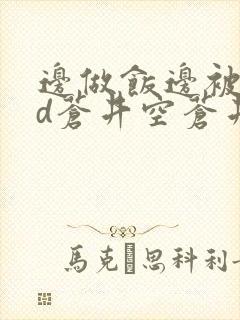 邊做飯邊被
d蒼井空蒼井
馬克�思科利